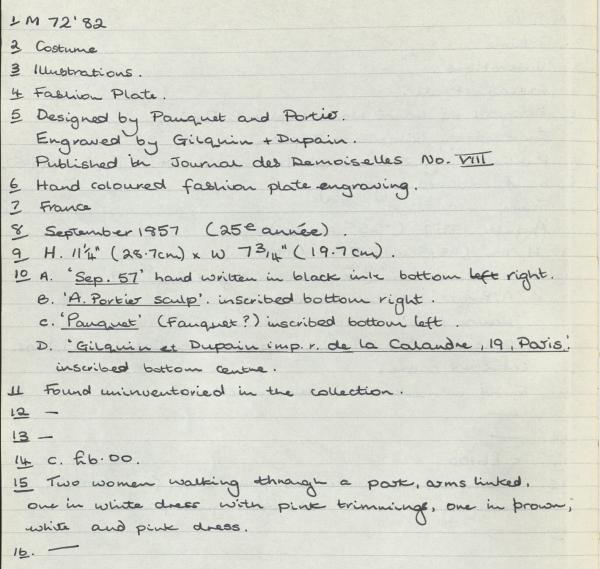 1 M 72'82
2 Costume
3 Illustrations.
4 Fashion Plate.
5 Designed by Pauquet and Portier.
Engraved by Gilquin + Dupain.
Published in Journal des Demoiselles No. VIII
6 Hand coloured fashion plate engraving.
7 France
8 September 1857 (25e année).
9 H. 11¼" (28.7cm) x W 7¾" (19.7cm).
10 A. 'Sep. 57' hand written in black ink bottom left right.
B. 'A. Portier sculp'. inscribed bottom right.
C. 'Pauquet' (Fauquet?) inscribed bottom left.
D. 'Gilquin et Dupain imp. r. de la Calandre, 19, Paris.'
inscribed bottom centre.
11 Found uninventoried in the collection.
12 —
13 —
14 c. £6.00.
15 Two women walking through a park, arms linked,
one in white dress with pink trimmings, one in brown,
white and pink dress.
16. —